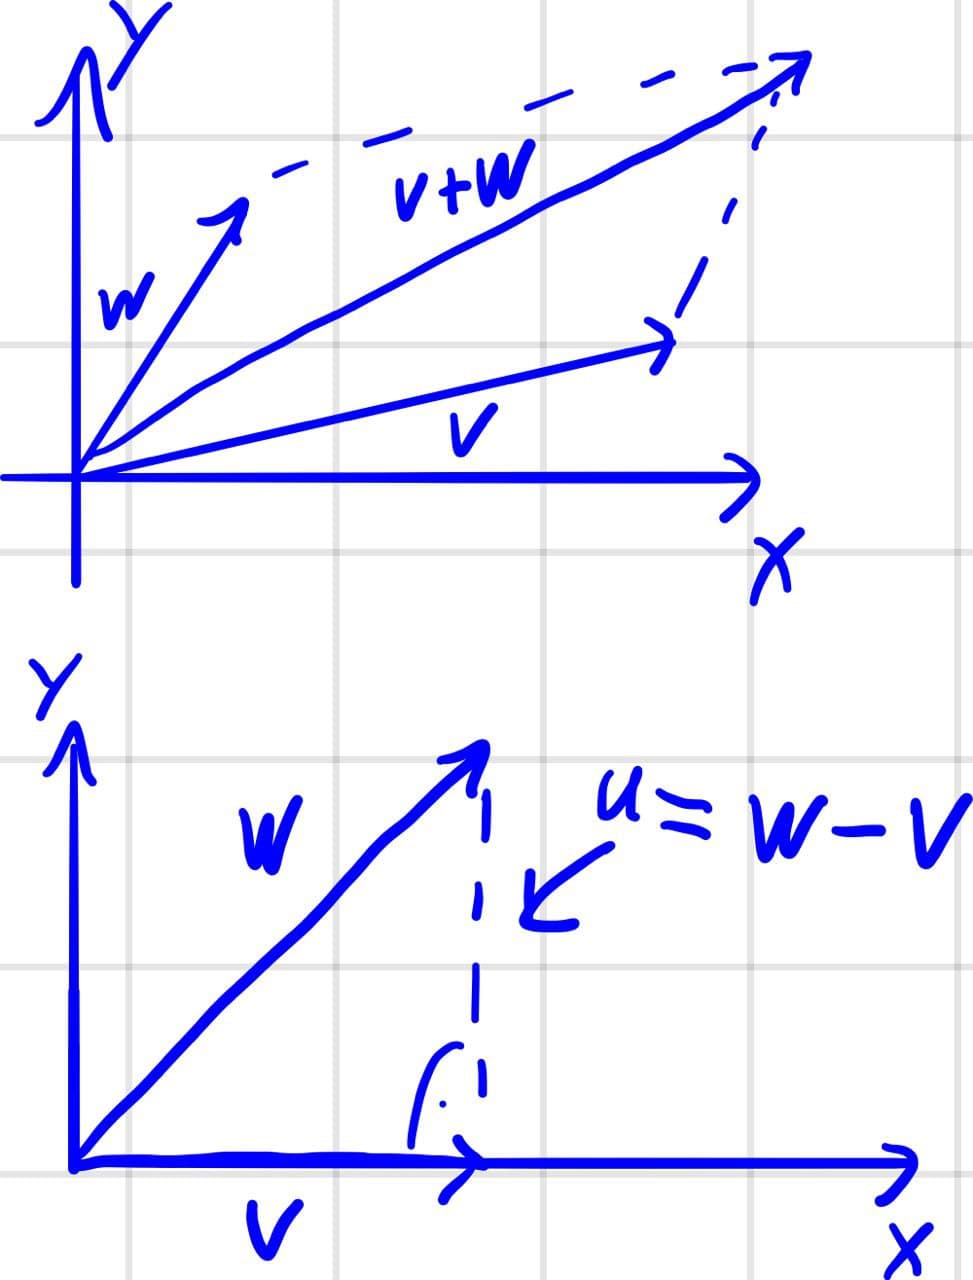 Y
v+w
w
v
X
Y
w
u = w - v
v
X